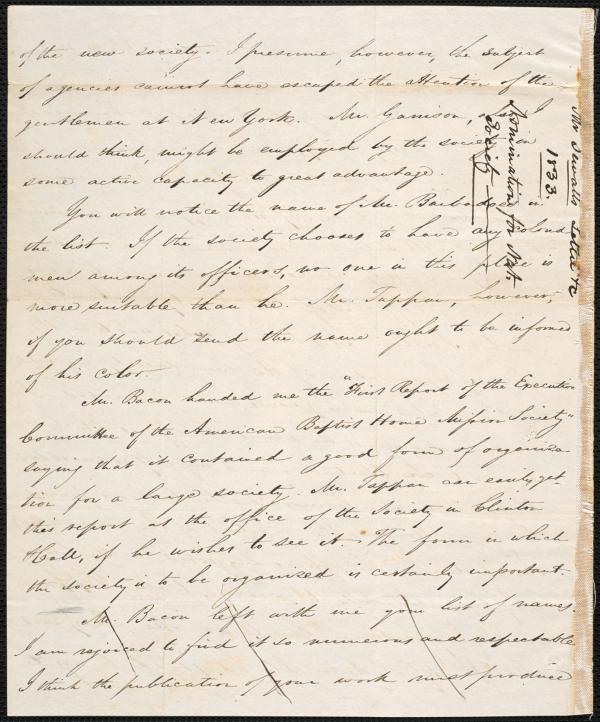 of the new society. I presume, however, the subject
of agencies cannot have escaped the attention of the
gentlemen at New York. Mr. Garrison, I
should think, might be employed by the society in
some active capacity to great advantage.
You will notice the name of Mr. Barbadoes in
the list. If the society chooses to have any colored
men among its officers, no one in this place is
more suitable than he. Mr. Tappan, however,
if you should send the name ought to be informed
of his color.
Mr. Bacon handed me the "First Report of the Executive
Committee of the American Baptist Home Mission Society"
saying that it contained a good form of organiza-
tion for a large society. Mr. Tappan can easily get
this report at the office of the Society in Clinton
Hall, if he wishes to see it. The form in which
the society is to be organized is certainly important.
Mr. Bacon left with me your list of names.
I am rejoiced to find it so numerous and respectable
I think the publication of your work must produce
Mr Sewalls Letter
1833.
Nomination for Nat.
Society